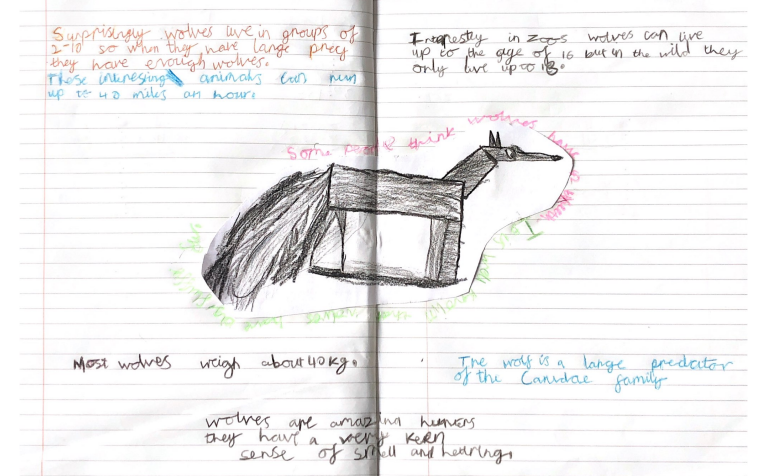 Surprisingly wolves live in groups of
2-10 so when they have large prey
they have enough wolves.
These interesting animals can run
up to 40 miles an hour.
in zoos wolves can live
up to the age of 16 but in the wild they
only live up to 13.
Some people think wolves have a
It is well known that wolves have
Most wolves weigh about 40kg.
The wolf is a large predator
of the Canidae family
wolves are amazing hunters
they have a very keen
sense of smell and hearing.